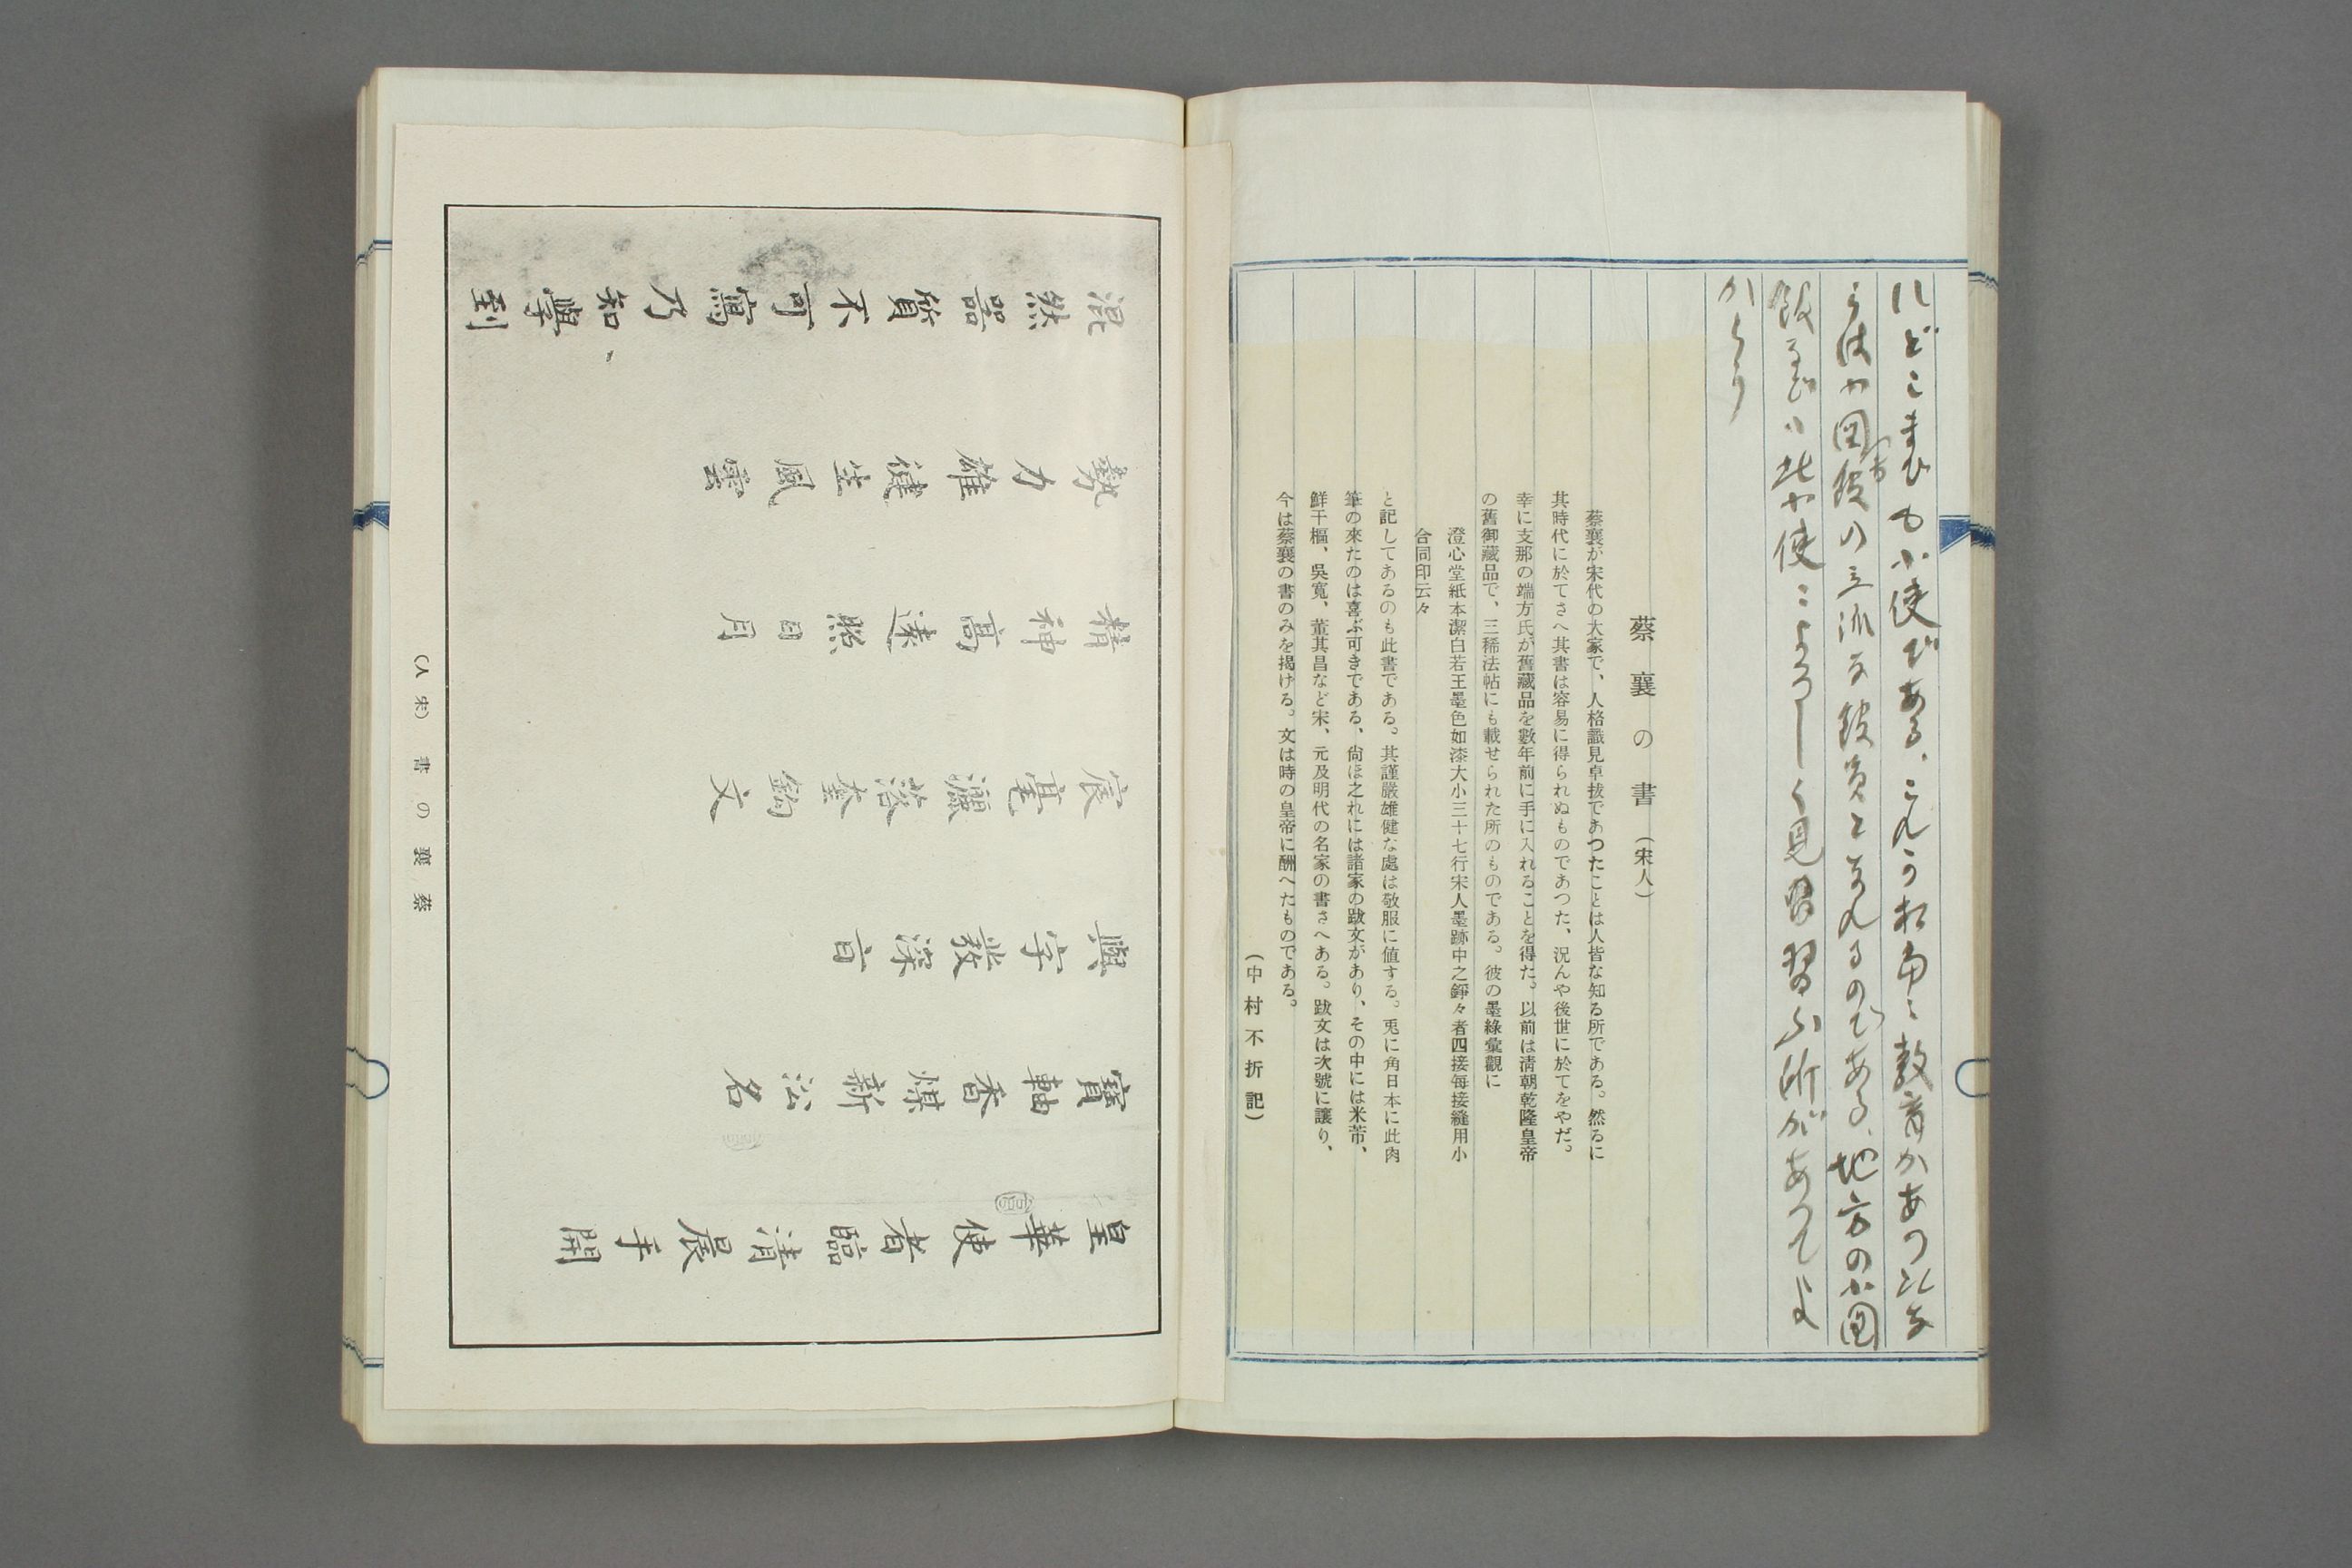 どこまでも小使である、こんな
の立派な館員となれるのである、地方の小図
館などハ此小使ニよろしく見習ふ所があつてよ
かろう
蔡襄の書（宋人）
蔡襄が宋代の大家で、人格識見卓拔であつたことは人皆な知る所である。然るに
其時代に於てさへ其書は容易に得られぬものであつた、況んや後世に於てをやだ。
幸に支那の端方氏が舊藏品を數年前に手に入れることを得た。以前は淸朝乾隆皇帝
の舊御藏品で、三稀法帖にも載せられた所のものである。彼の墨綠彙觀に
澄心堂紙本潔白若王墨色如漆大小三十七行宋人墨跡中之錚々者四接每接縫用小
合同印云々
と記してあるのも此書である。其謹嚴雄健な處は敬服に値する。兎に角日本に此肉
筆の來たのは喜ぶ可きである、尙ほ之れには諸家の跋文があり、その中には米芾、
鮮于樞、吳寬、董其昌など宋、元及明代の名家の書さへある。跋文は次號に讓り、
今は蔡襄の書のみを揭ける。文は時の皇帝に酬へたものである。
（中村不折記）
皇華使者臨清晨手開
寶軸香煤新沿名
與字發深旨
宸毫灑落奎鈎文
精神高遠照日月
勢力雄健生風雲
混然器質不可寫乃知學到
蔡襄の書（宋人）